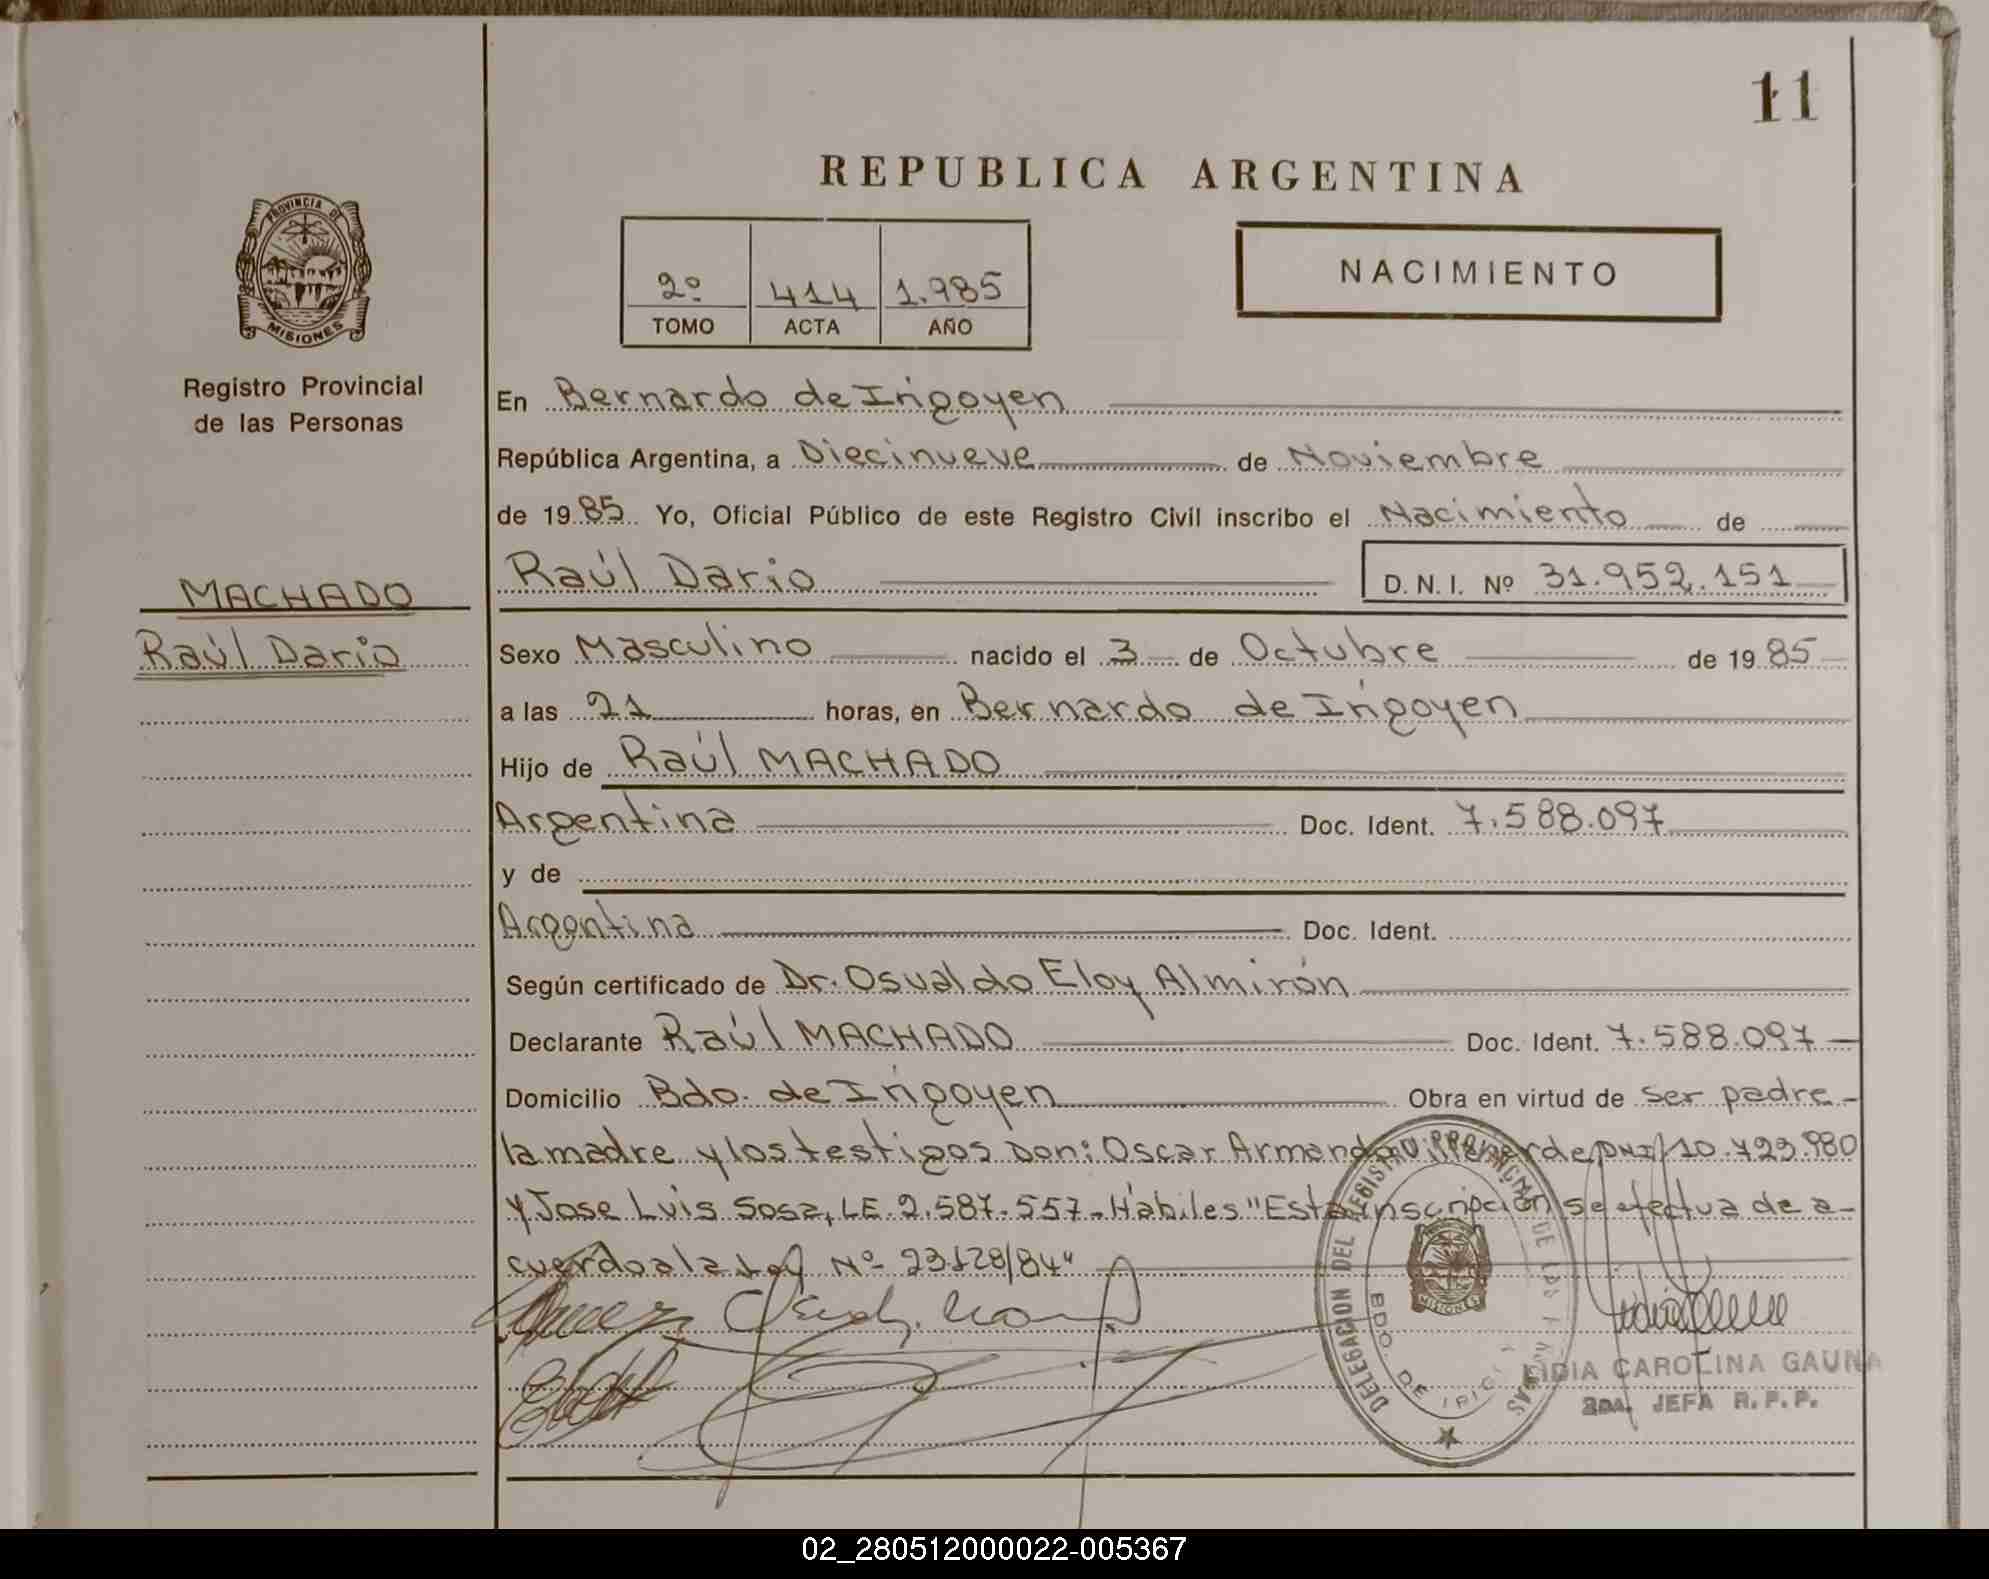 11
REPUBLICA ARGENTINA
PROVINCIA DE
MISIONES
2º 414 1.985
TOMO ACTA AÑO
NACIMIENTO
Registro Provincial
de las Personas
En Bernardo de Irigoyen
República Argentina, a Diecinueve de Noviembre
de 1985 Yo, Oficial Público de este Registro Civil inscribo el Nacimiento de
MACHADO
Raúl Dario
Raúl Dario D. N. I. Nº 31.952.151
Sexo Masculino nacido el 3 de Octubre de 1985
a las 21 horas, en Bernardo de Irigoyen
Hijo de Raúl MACHADO
Argentina Doc. Ident. 7.588.097
y de
Argentina Doc. Ident.
Según certificado de Dr. Osvaldo Eloy Almirón
Declarante Raúl MACHADO Doc. Ident. 7.588.097
Domicilio Bdo. de Irigoyen Obra en virtud de ser padre-
la madre y los testigos Don: Oscar Armando DNI/10.723.980
y Jose Luis Sosa, LE. 2.587.557- Hábiles "Esta inscripción se efectua de a-
cuerdo a la Ley Nº 23128/84"
DELEGACION DEL REGISTRO PROVINCIAL DE LAS PERSONAS
BDO. DE
MISIONES
LIDIA CAROLINA GAUNA
2DA. JEFA R.P.P.
02_280512000022-005367